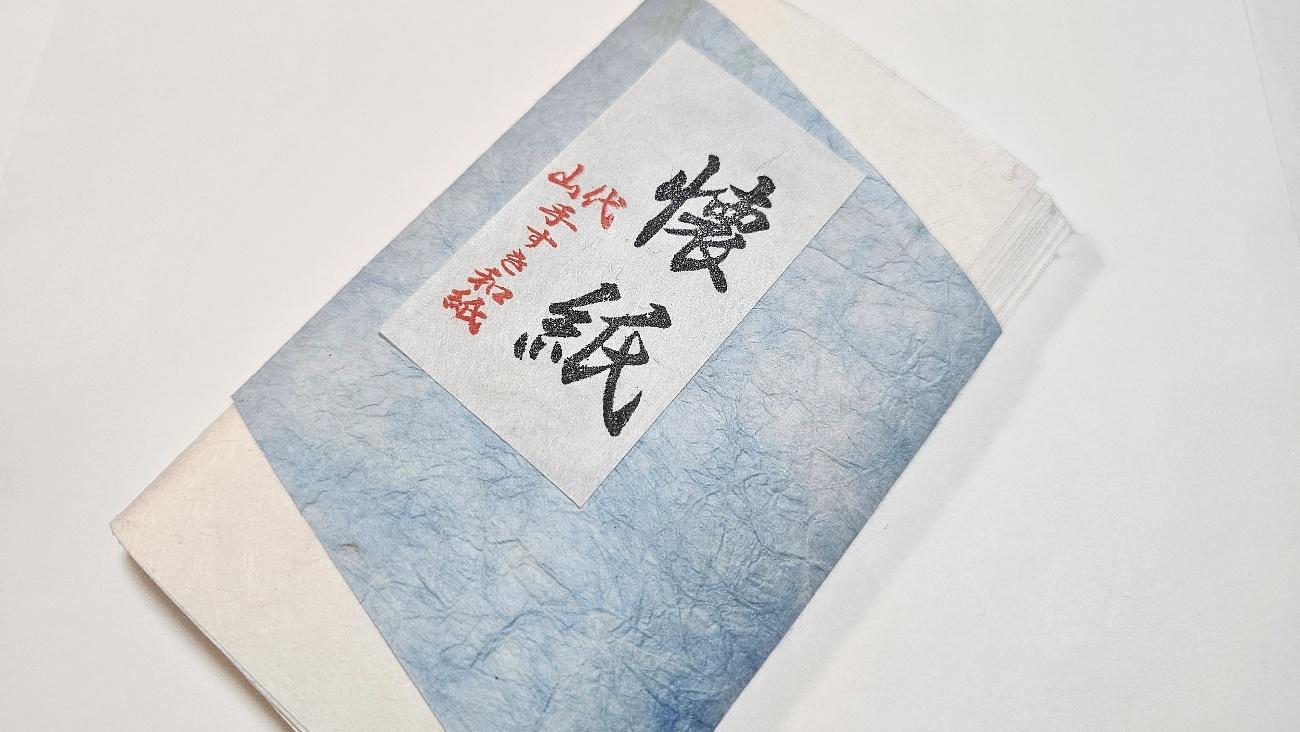 懐紙
山代
手すき和紙